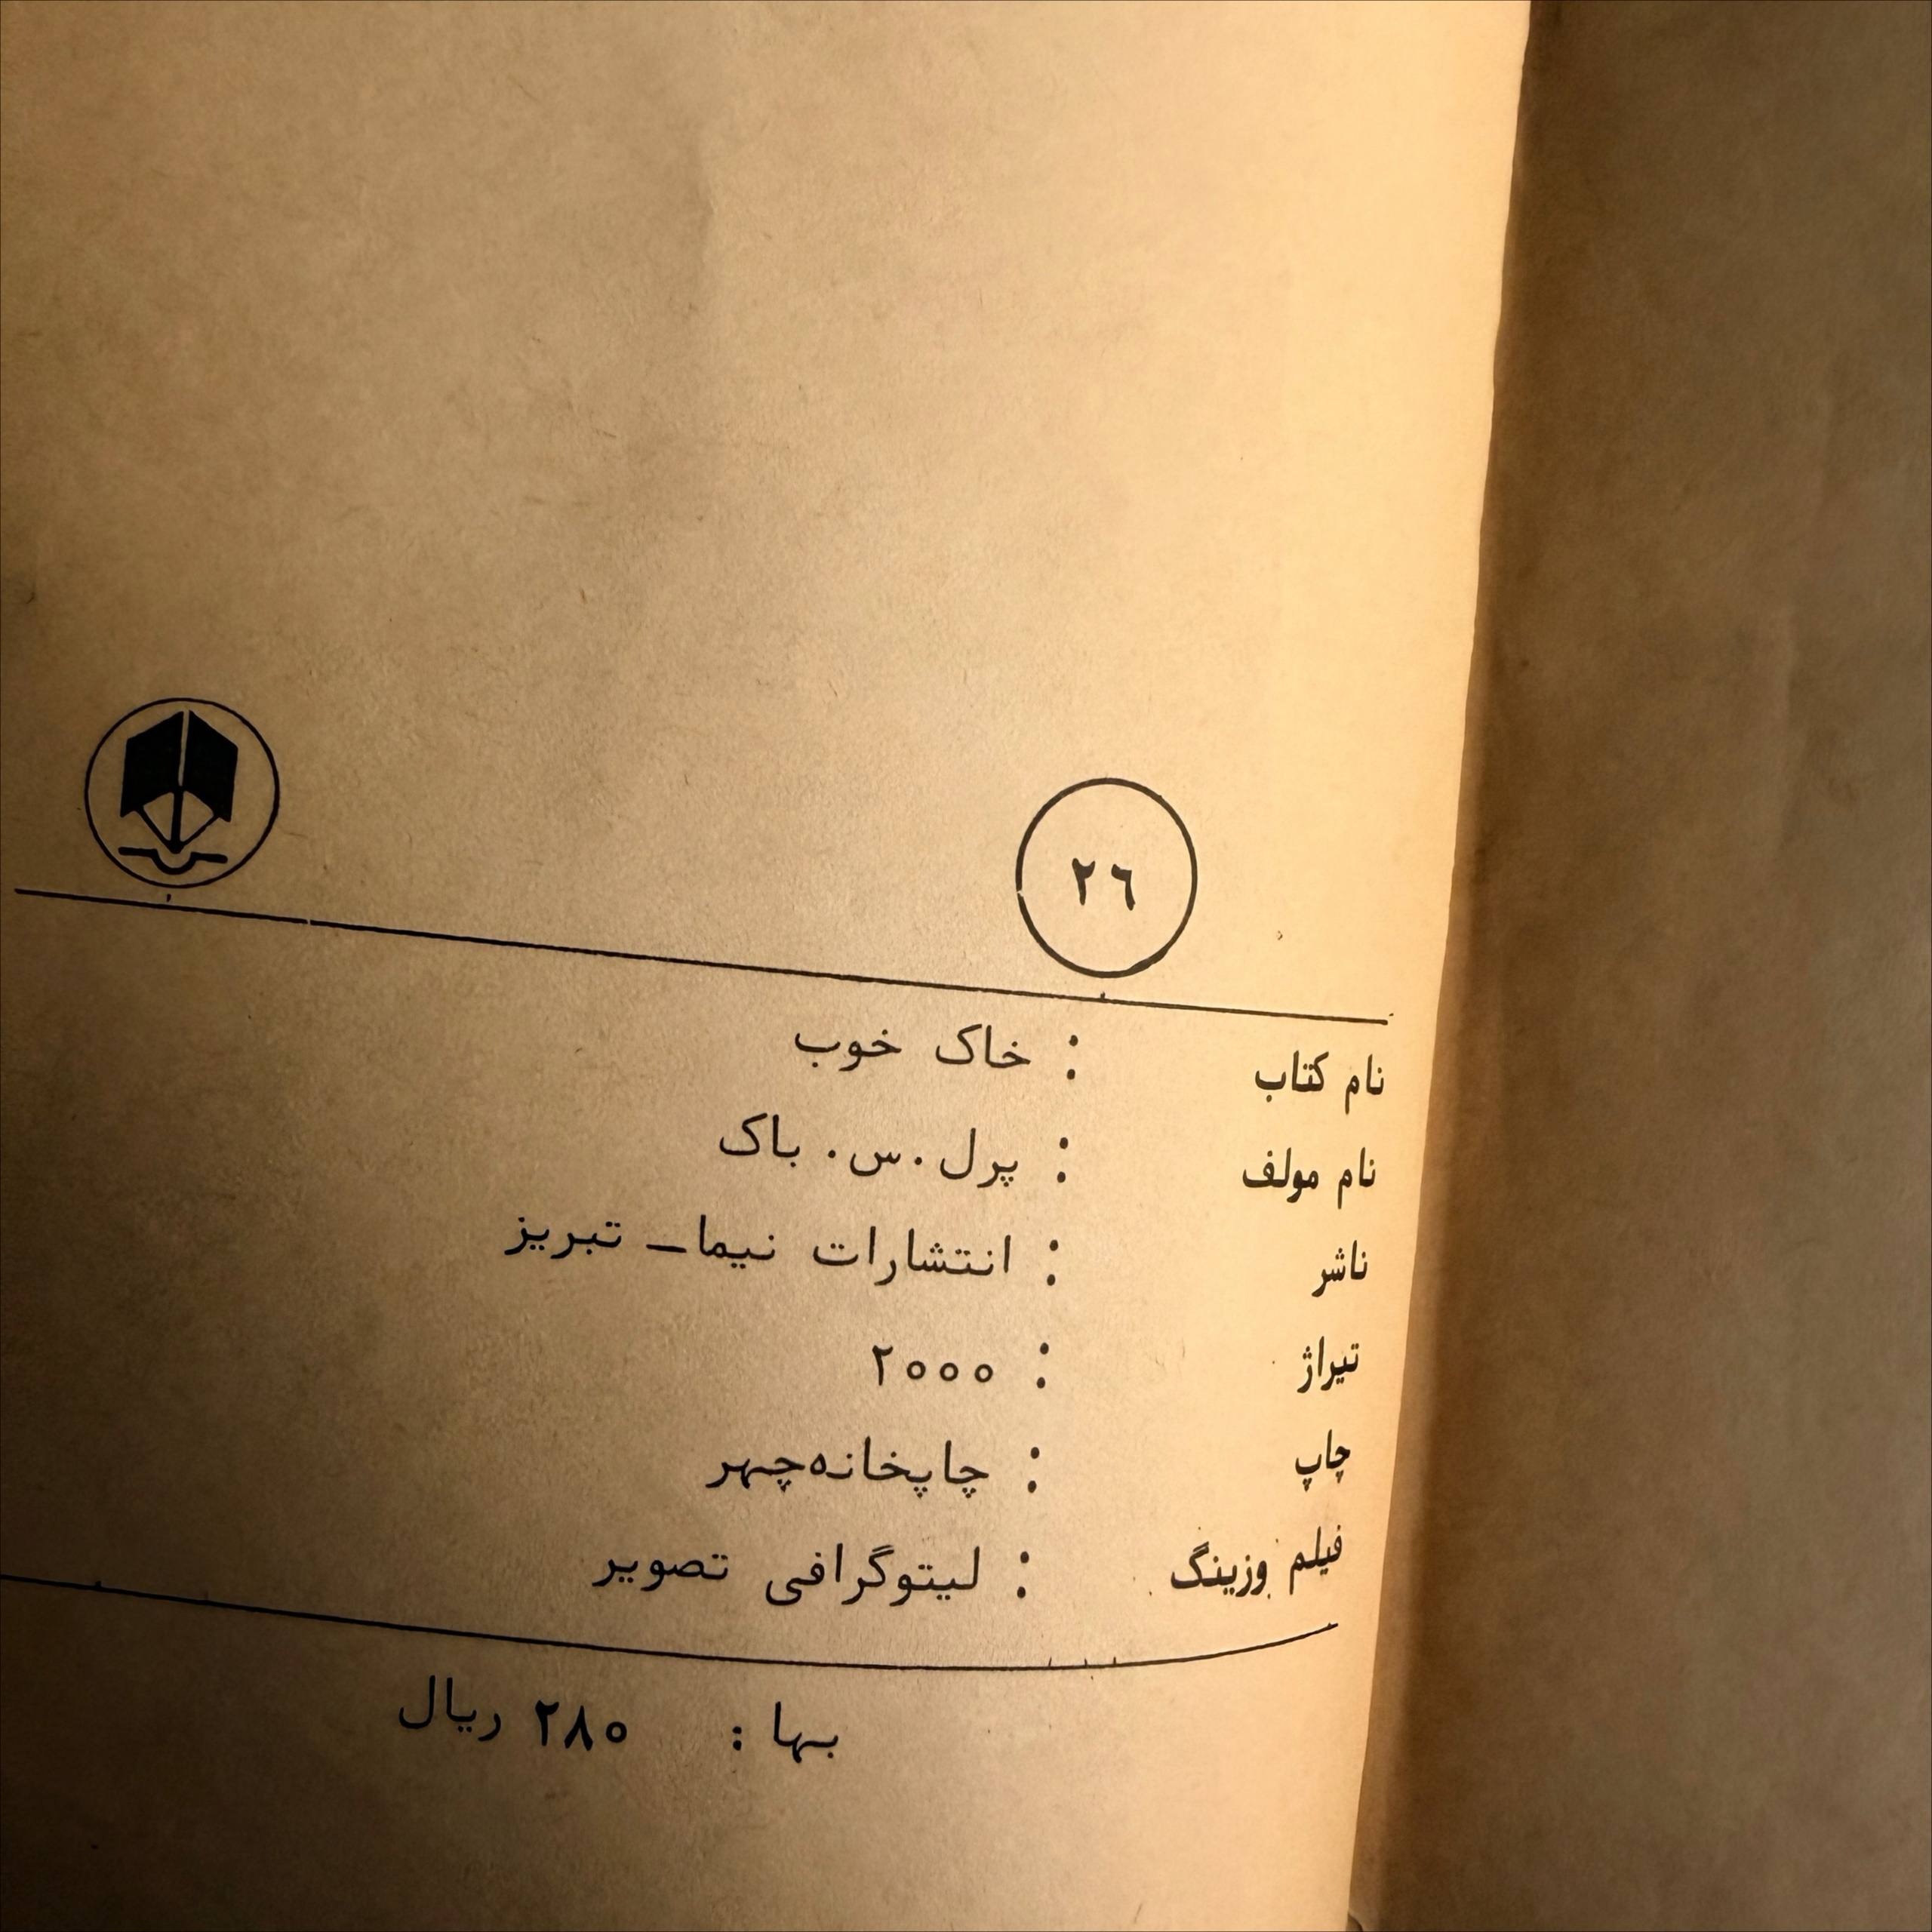 ۲٦
نام کتاب : خاک خوب
نام مولف : پرل . س . باک
ناشر : انتشارات نیما ـ تبریز
تیراژ : ۲۰۰۰
چاپ : چاپخانه چهر
فیلم وزینگ : لیتوگرافی تصویر
بها : ۲۸۰ ریال